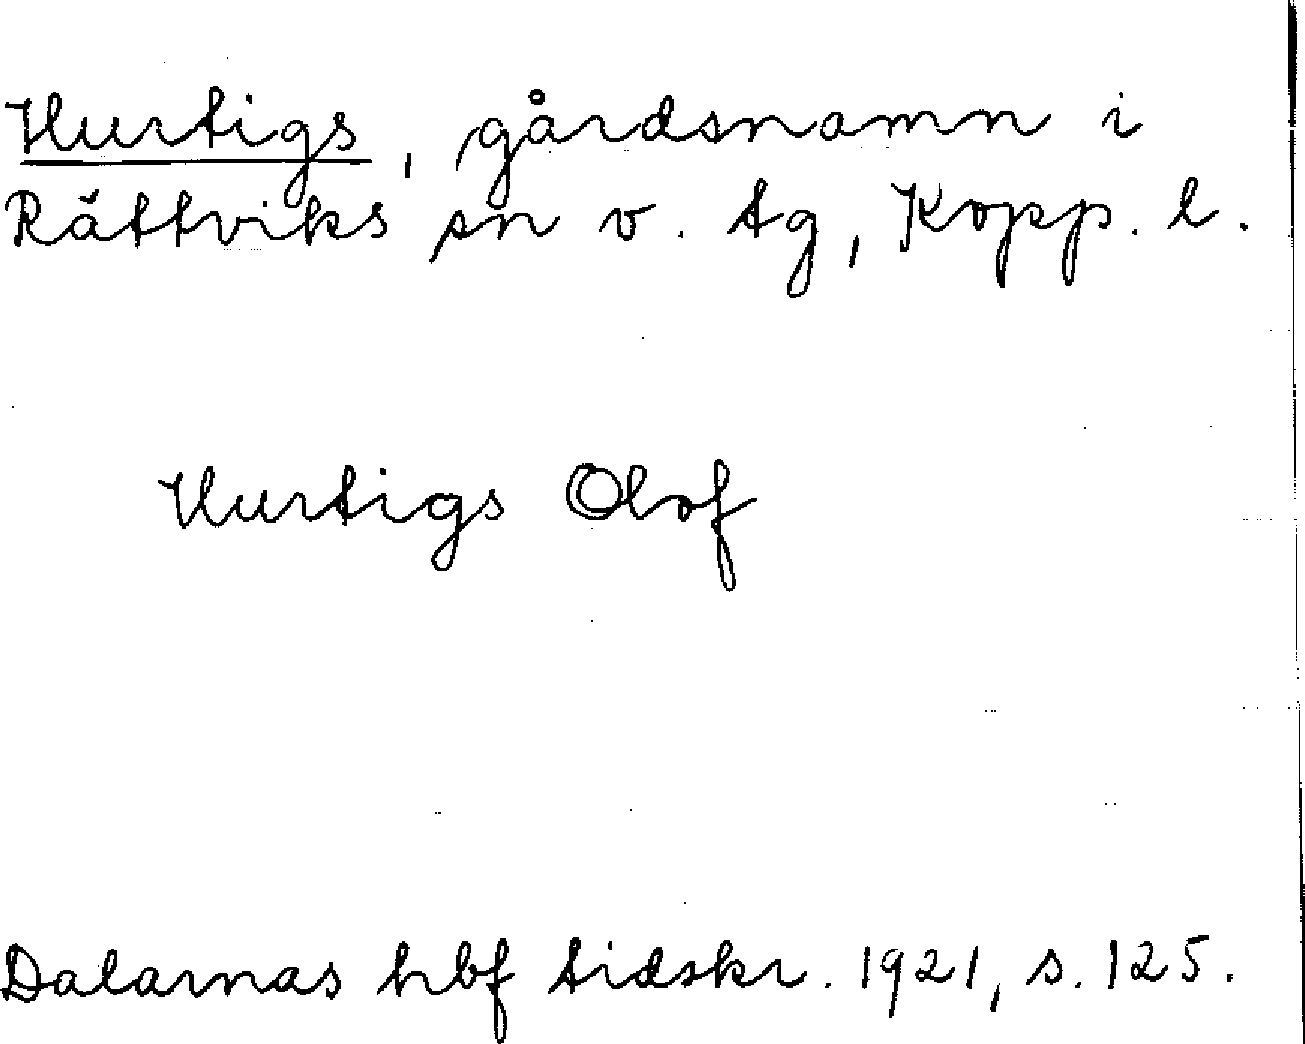 Hurtigs, gårdsnamn i
Rättviks sn v. tg, Kopp. l.
Hurtigs Olof
Dalarnas hbf tidskr. 1921, s. 125.